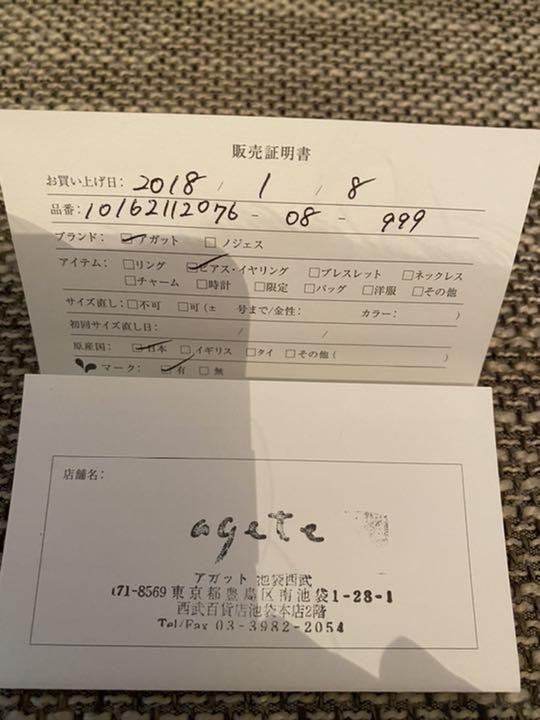 販売証明書
お買い上げ日: 2018 / 1 / 8
品番: 10162112076 - 08 - 999
ブランド: ☑アガット □ノジェス
アイテム: □リング ☑ピアス・イヤリング □ブレスレット □ネックレス
□チャーム □時計 □限定 □バッグ □洋服 □その他
サイズ直し: □不可 □可(± 号まで/金性: カラー: )
初回サイズ直し日: / /
原産国: ☑日本 □イギリス □タイ □その他( )
マーク: ☑有 □無
店舗名:
agete
アガット 池袋西武
171-8569 東京都豊島区南池袋1-28-1
西武百貨店池袋本店2階
Tel/Fax 03-3982-2054